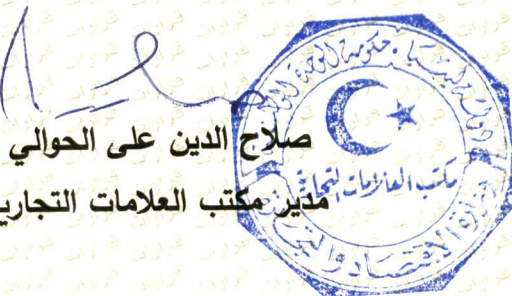 صلاح الدين على الحوالي
مدير مكتب العلامات التجاري
دولة ليبيا . حكومة الوحدة الوطنية
مكتب العلامات التجارية
وزارة الاقتصاد والتجارة